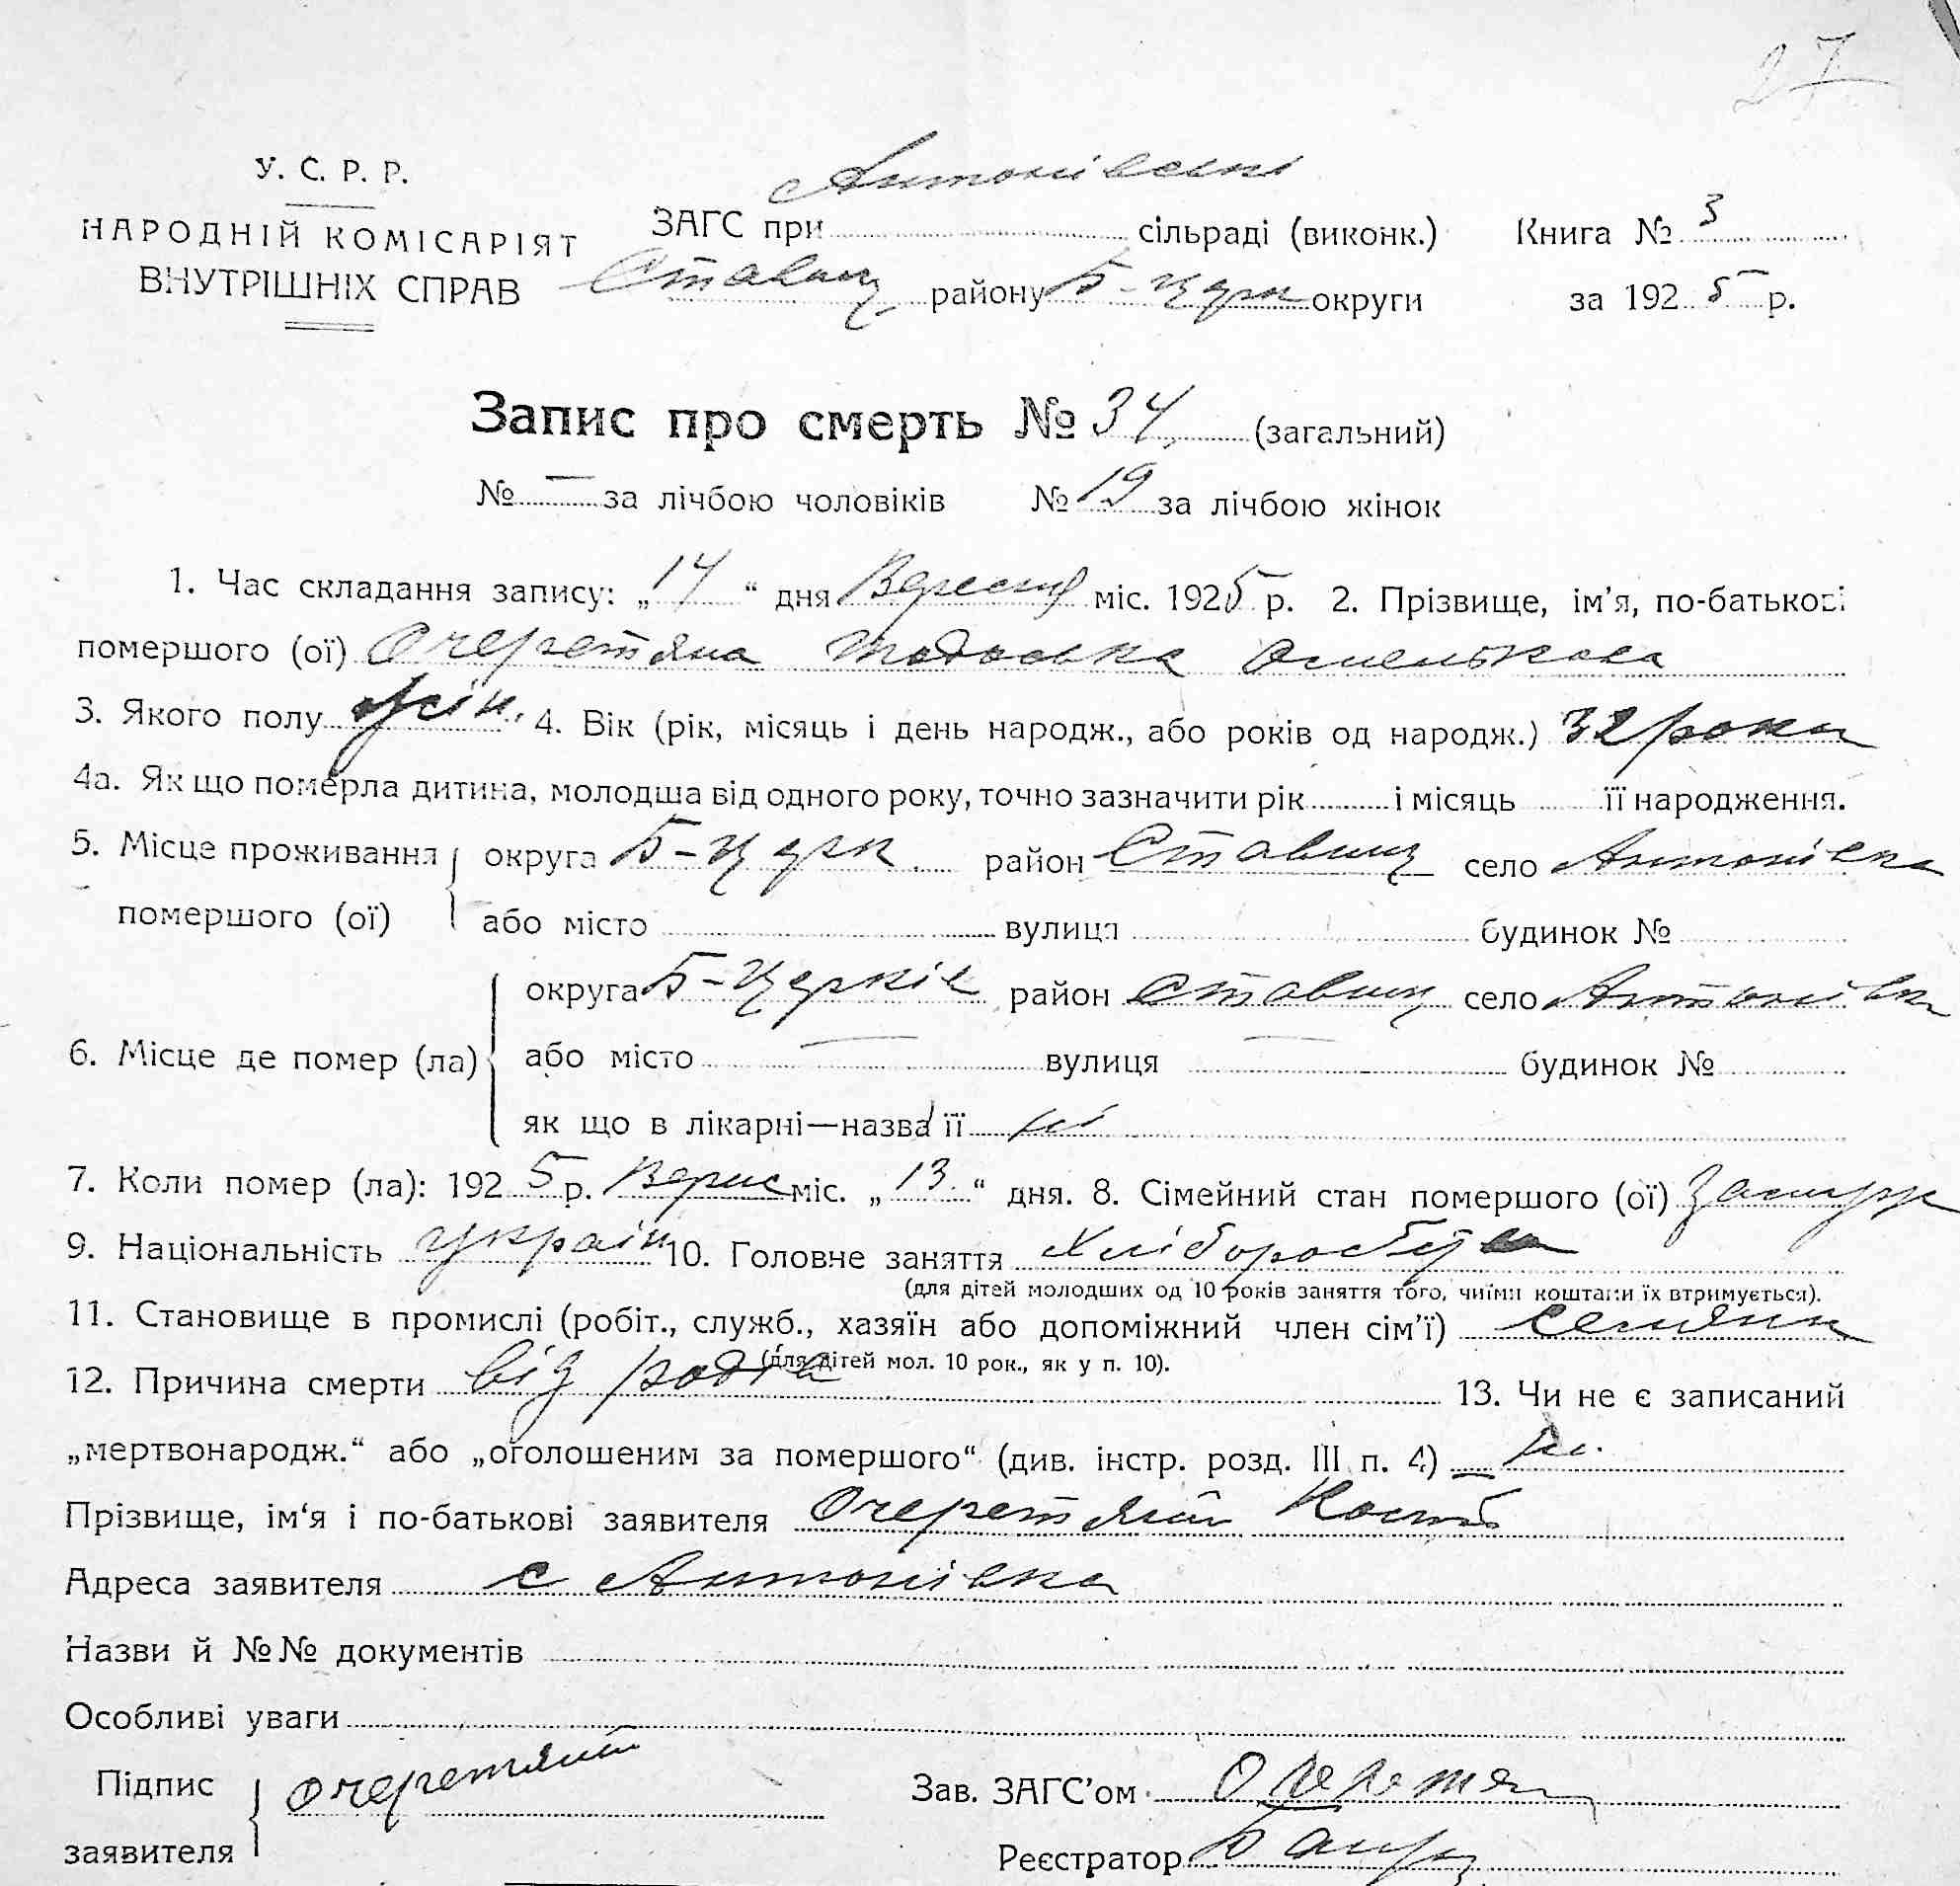 27
У. С. Р. Р.
НАРОДНІЙ КОМІСАРІЯТ
ВНУТРІШНІХ СПРАВ
ЗАГС при Антонівські сільраді (виконк.)
Ставищ району Б-Церк округи
Книга № 3
за 1925 р.
Запис про смерть № 34 (загальний)
№ — за лічбою чоловіків № 19 за лічбою жінок
1. Час складання запису: „14“ дня Вересня міс. 1925 р. 2. Прізвище, ім’я, по-батькові
помершого (ої) Очеретяна Тодоська Омелькова
3. Якого полу жін. 4. Вік (рік, місяць і день народж., або років од народж.) 32 роки
4а. Як що померла дитина, молодша від одного року, точно зазначити рік і місяць її народження.
5. Місце проживання округа Б-Церк район Ставищ село Антонівка
помершого (ої) або місто вулиця будинок №
округа Б-Церків район Ставищ село Антонівка
6. Місце де помер (ла) або місто — вулиця — будинок №
як що в лікарні—назва її ні
7. Коли помер (ла): 1925 р. Верис міс. „13“ дня. 8. Сімейний стан помершого (ої) Замуж
9. Національність україн 10. Головне заняття Хлібороб
(для дітей молодших од 10 років заняття того, чиїми коштами їх втримується).
11. Становище в промислі (робіт., служб., хазяїн або допоміжний член сім’ї) селянин
(для дітей мол. 10 рок., як у п. 10).
12. Причина смерти від родів 13. Чи не є записаний
„мертвонародж.“ або „оголошеним за помершого“ (див. інстр. розд. III п. 4) — ні.
Прізвище, ім‘я і по-батькові заявителя Очеретяний Кость
Адреса заявителя с Антонівка
Назви й №№ документів
Особливі уваги
Підпис заявителя Очеретяний
Зав. ЗАГС’ом Очеретян
Реєстратор